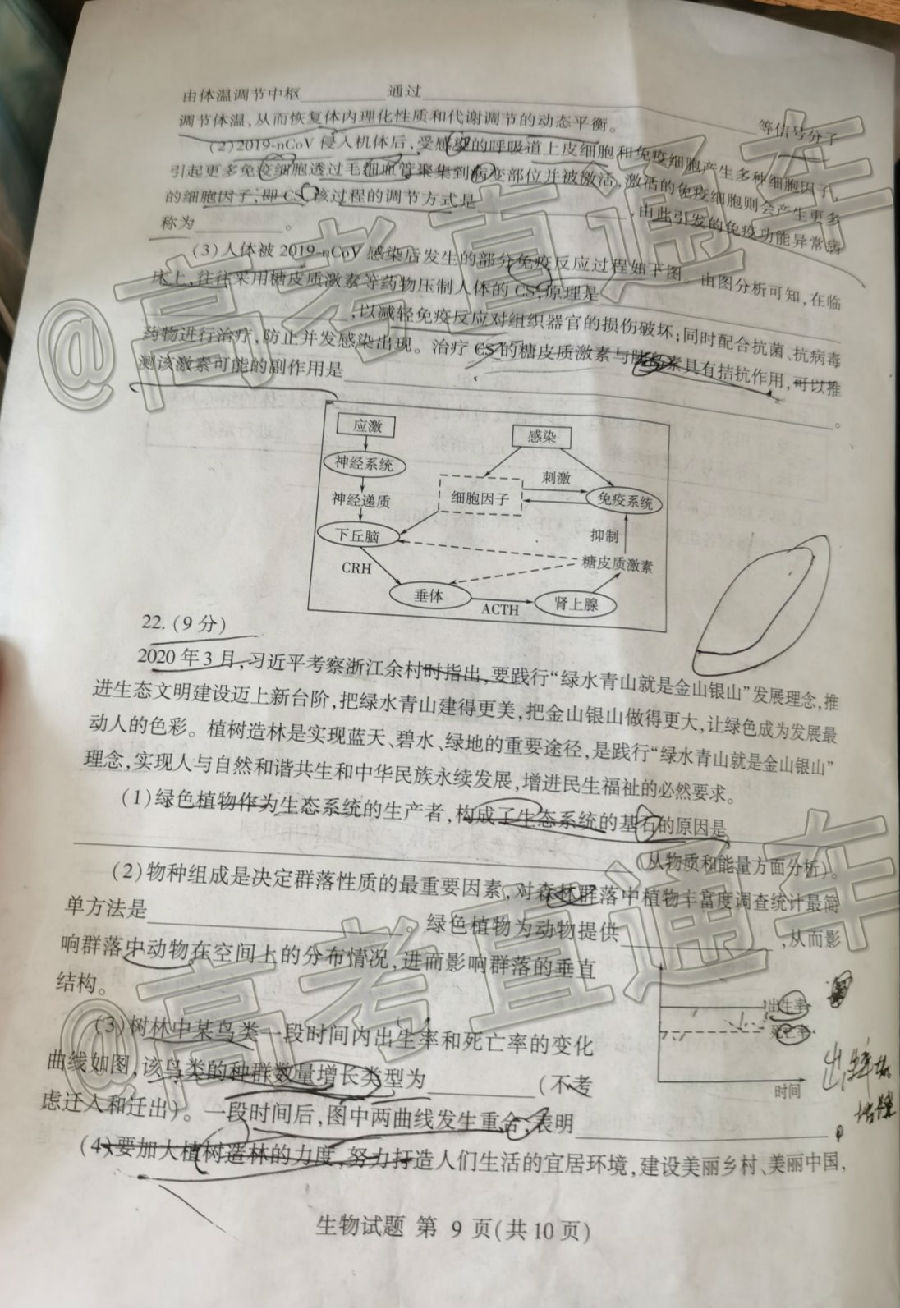 由体温调节中枢________通过________等信号分子
调节体温、从而恢复体内理化性质和代谢调节的动态平衡。
(2)2019-nCoV 侵入机体后,受感染的呼吸道上皮细胞和免疫细胞产生多种细胞因子,
引起更多免疫细胞透过毛细血管聚集到病变部位并被激活,激活的免疫细胞则会产生更多
的细胞因子,即CS,该过程的调节方式是________,由此引发的免疫功能异常病
称为________。
(3)人体被 2019-nCoV 感染后发生的部分免疫反应过程如下图。由图分析可知,在临
床上,往往采用糖皮质激素等药物压制人体的 CS,原理是________
________,以减轻免疫反应对组织器官的损伤破坏;同时配合抗菌、抗病毒
药物进行治疗,防止并发感染出现。治疗 CS 的糖皮质激素与胰岛素具有拮抗作用,可以推
测该激素可能的副作用是________。
应激
感染
神经系统
刺激
细胞因子
免疫系统
神经递质
下丘脑
抑制
糖皮质激素
CRH
垂体
ACTH
肾上腺
22.(9分)
2020年3月,习近平考察浙江余村时指出,要践行“绿水青山就是金山银山”发展理念,推
进生态文明建设迈上新台阶,把绿水青山建得更美,把金山银山做得更大,让绿色成为发展最
动人的色彩。植树造林是实现蓝天、碧水、绿地的重要途径,是践行“绿水青山就是金山银山”
理念,实现人与自然和谐共生和中华民族永续发展,增进民生福祉的必然要求。
(1)绿色植物作为生态系统的生产者,构成了生态系统的基石的原因是
________(从物质和能量方面分析)。
(2)物种组成是决定群落性质的最重要因素,对森林群落中植物丰富度调查统计最简
单方法是________。绿色植物为动物提供________,从而影
响群落中动物在空间上的分布情况,进而影响群落的垂直
结构。
出生率
死亡率
时间
(3)树林中某鸟类一段时间内出生率和死亡率的变化
曲线如图,该鸟类的种群数量增长类型为________(不考
虑迁入和迁出)。一段时间后,图中两曲线发生重合,表明________。
(4)要加大植树造林的力度,努力打造人们生活的宜居环境,建设美丽乡村、美丽中国,
生物试题 第 9 页(共 10 页)
@高考直通车
@高考直通车